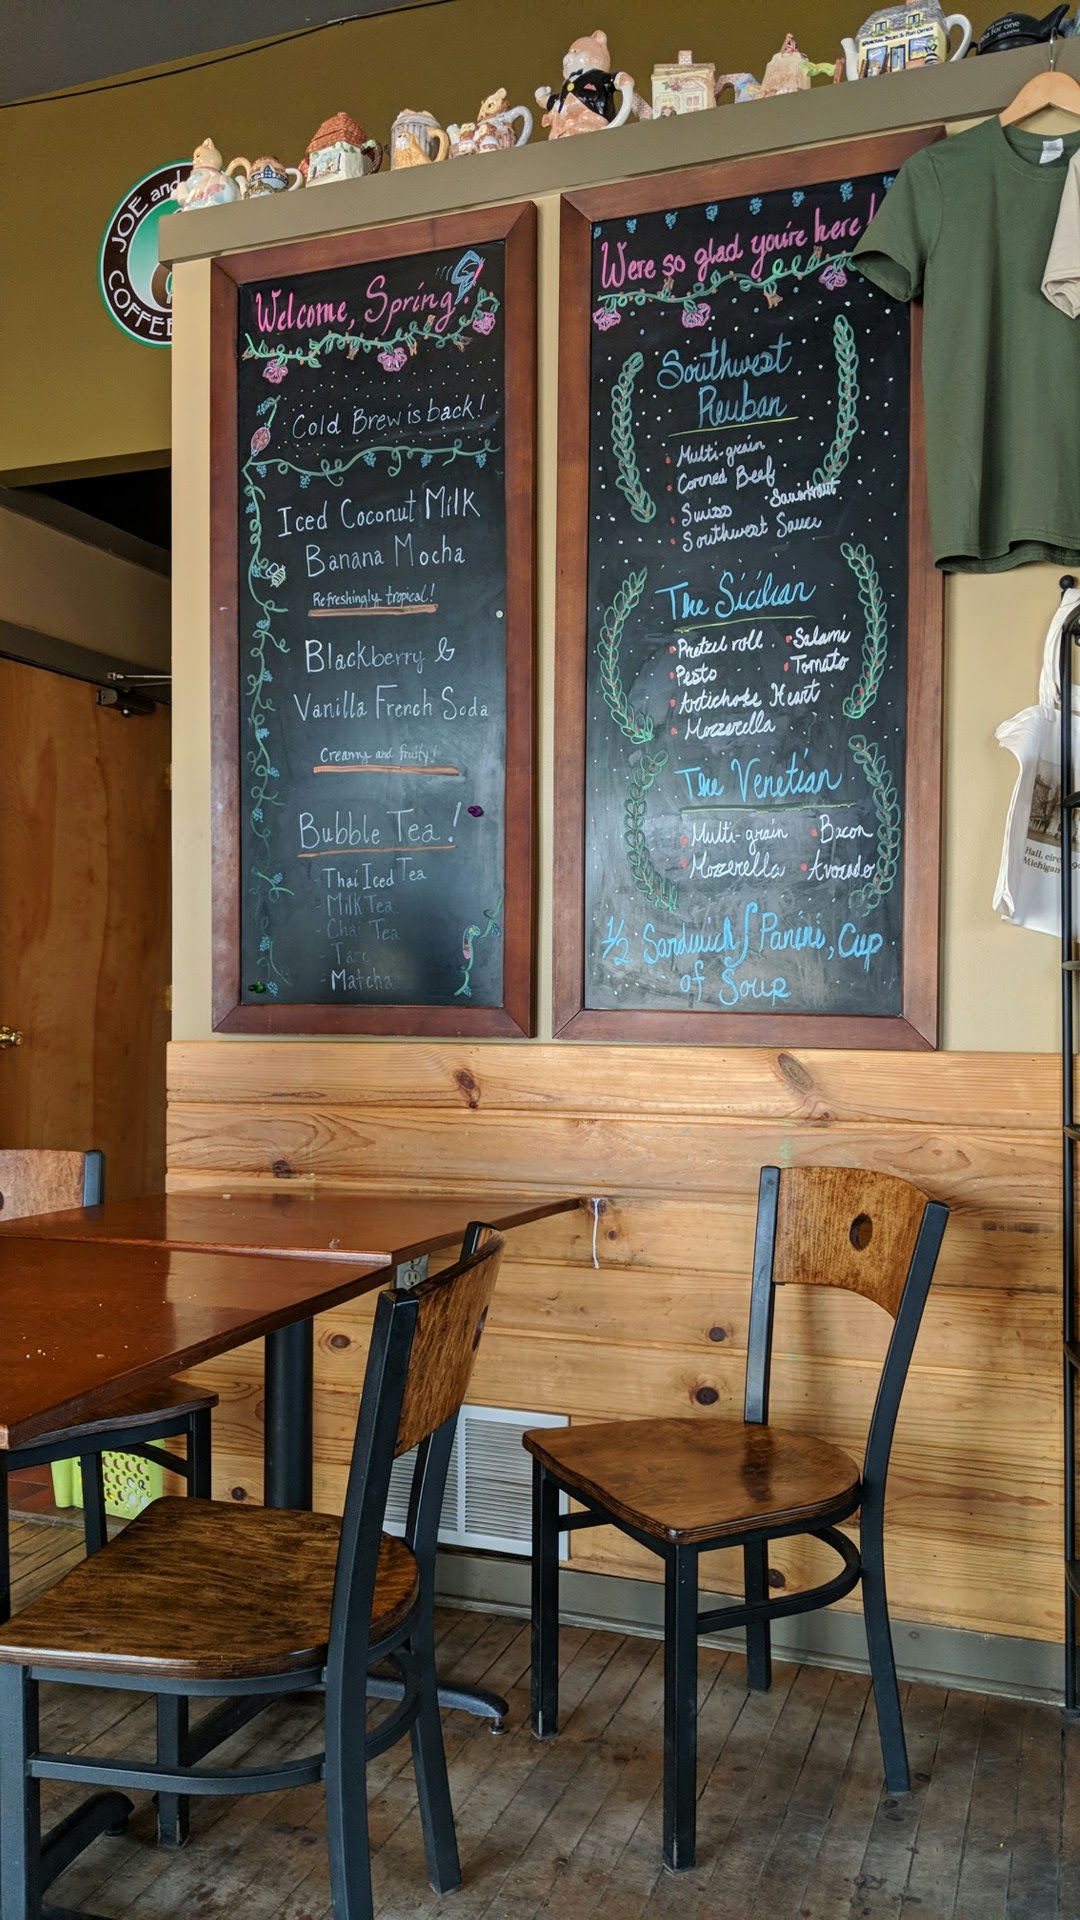 JOE and
COFFEE
GENERAL STORE & POST OFFICE
Welcome, Spring!
Cold Brew is back!
Iced Coconut Milk
Banana Mocha
Refreshingly tropical!
Blackberry &
Vanilla French Soda
Creamy and fruity!
Bubble Tea!
- Thai Iced Tea
- Milk Tea
- Chai Tea
- Taro
- Matcha
We're so glad you're here!
Southwest
Reuban
• Multi-grain
• Corned Beef
• Swiss • Sauerkraut
• Southwest Sauce
The Sicilian
• Pretzel roll • Salami
• Pesto • Tomato
• Artichoke Heart
• Mozzerella
The Venetian
• Multi-grain • Bacon
• Mozzerella • Avocado
1/2 Sandwich / Panini, Cup
of Soup
Michigan